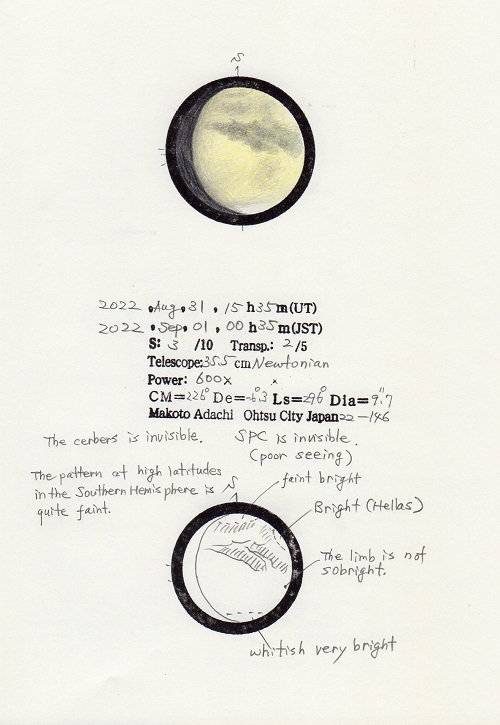 S
2022 Aug. 31, 15 h 35 m (UT)
2022 Sep. 01, 00 h 35 m (JST)
S: 3 /10 Transp.: 2 /5
Telescope: 35.5 cm Newtonian
Power: 600x x
CM=226° De=-6.3 Ls=296° Dia=9."7
Makoto Adachi Ohtsu City Japan 22-146
The cerbers is invisible.
SPC is invisible.
(poor seeing)
The pattern at high latitudes
in the Southern Hemisphere is
quite faint.
S
faint bright
Bright (Hellas)
The limb is not
sobright.
whitish very bright